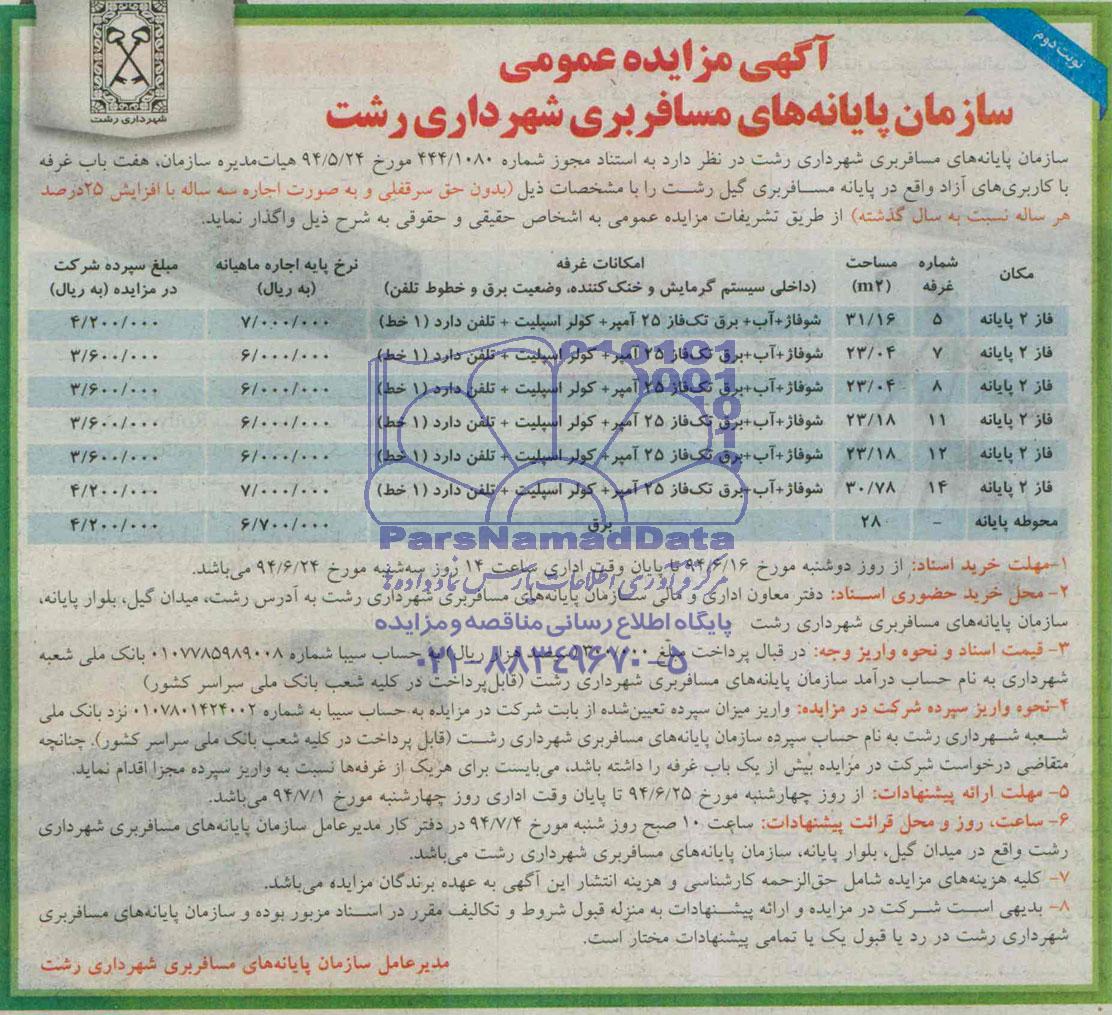 نوبت دوم
شهرداری رشت
آگهی مزایده عمومی
سازمان پایانه‌های مسافربری شهرداری رشت
سازمان پایانه‌های مسافربری شهرداری رشت در نظر دارد به استناد مجوز شماره ۴۴۴/۱۰۸۰ مورخ ۹۴/۵/۲۴ هیات‌مدیره سازمان، هفت باب غرفه
با کاربری‌های آزاد واقع در پایانه مسافربری گیل رشت را با مشخصات ذیل (بدون حق سرقفلی و به صورت اجاره سه ساله با افزایش ۲۵درصد
هر ساله نسبت به سال گذشته) از طریق تشریفات مزایده عمومی به اشخاص حقیقی و حقوقی به شرح ذیل واگذار نماید.
مکان شماره غرفه مساحت (m۲) امکانات غرفه (داخلی سیستم گرمایش و خنک‌کننده، وضعیت برق و خطوط تلفن) نرخ پایه اجاره ماهیانه (به ریال) مبلغ سپرده شرکت در مزایده (به ریال)
فاز ۲ پایانه ۵ ۳۱/۱۶ شوفاژ+آب+ برق تک‌فاز ۲۵ آمپر+ کولر اسپلیت + تلفن دارد (۱ خط) ۷/۰۰۰/۰۰۰ ۴/۲۰۰/۰۰۰
فاز ۲ پایانه ۷ ۲۳/۰۴ شوفاژ+آب+برق تک‌فاز ۲۵ آمپر+ کولر اسپلیت + تلفن دارد (۱ خط) ۶/۰۰۰/۰۰۰ ۳/۶۰۰/۰۰۰
فاز ۲ پایانه ۸ ۲۳/۰۴ شوفاژ+آب+برق تک‌فاز ۲۵ آمپر+ کولر اسپلیت + تلفن دارد (۱ خط) ۶/۰۰۰/۰۰۰ ۳/۶۰۰/۰۰۰
فاز ۲ پایانه ۱۱ ۲۳/۱۸ شوفاژ+آب+برق تک‌فاز ۲۵ آمپر+ کولر اسپلیت + تلفن دارد (۱ خط) ۶/۰۰۰/۰۰۰ ۳/۶۰۰/۰۰۰
فاز ۲ پایانه ۱۲ ۲۳/۱۸ شوفاژ+آب+برق تک‌فاز ۲۵ آمپر+ کولر اسپلیت + تلفن دارد (۱ خط) ۶/۰۰۰/۰۰۰ ۳/۶۰۰/۰۰۰
فاز ۲ پایانه ۱۴ ۳۰/۷۸ شوفاژ+آب+برق تک‌فاز ۲۵ آمپر+ کولر اسپلیت + تلفن دارد (۱ خط) ۷/۰۰۰/۰۰۰ ۴/۲۰۰/۰۰۰
محوطه پایانه - ۲۸ برق ۶/۷۰۰/۰۰۰ ۴/۲۰۰/۰۰۰
ParsNamadData
مرکز فرآوری اطلاعات پارس نماد داده‌ها
پایگاه اطلاع رسانی مناقصه و مزایده
۰۲۱-۸۸۳۴۹۶۷۰-۵
۱-مهلت خرید اسناد: از روز دوشنبه مورخ ۹۴/۶/۱۶ تا پایان وقت اداری ساعت ۱۴ روز سه‌شنبه مورخ ۹۴/۶/۲۴ می‌باشد.
۲- محل خرید حضوری اسناد: دفتر معاون اداری و مالی سازمان پایانه‌های مسافربری شهرداری رشت به آدرس رشت، میدان گیل، بلوار پایانه،
سازمان پایانه‌های مسافربری شهرداری رشت
۳- قیمت اسناد و نحوه واریز وجه: در قبال پرداخت مبلغ هزار ریال) به حساب سیبا شماره ۰۱۰۷۷۸۵۹۸۹۰۰۸ بانک ملی شعبه
شهرداری به نام حساب درآمد سازمان پایانه‌های مسافربری شهرداری رشت (قابل‌پرداخت در کلیه شعب بانک ملی سراسر کشور)
۴-نحوه واریز سپرده شرکت در مزایده: واریز میزان سپرده تعیین‌شده از بابت شرکت در مزایده به حساب سیبا به شماره ۰۱۰۷۸۰۱۴۲۴۰۰۲ نزد بانک ملی
شعبه شهرداری رشت به نام حساب سپرده سازمان پایانه‌های مسافربری شهرداری رشت (قابل پرداخت در کلیه شعب بانک ملی سراسر کشور). چنانچه
متقاضی درخواست شرکت در مزایده بیش از یک باب غرفه را داشته باشد، می‌بایست برای هریک از غرفه‌ها نسبت به واریز سپرده مجزا اقدام نماید.
۵- مهلت ارائه پیشنهادات: از روز چهارشنبه مورخ ۹۴/۶/۲۵ تا پایان وقت اداری روز چهارشنبه مورخ ۹۴/۷/۱ می‌باشد.
۶- ساعت، روز و محل قرائت پیشنهادات: ساعت ۱۰ صبح روز شنبه مورخ ۹۴/۷/۴ در دفتر کار مدیرعامل سازمان پایانه‌های مسافربری شهرداری
رشت واقع در میدان گیل، بلوار پایانه، سازمان پایانه‌های مسافربری شهرداری رشت می‌باشد.
۷- کلیه هزینه‌های مزایده شامل حق‌الزحمه کارشناسی و هزینه انتشار این آگهی به عهده برندگان مزایده می‌باشد.
۸- بدیهی است شرکت در مزایده و ارائه پیشنهادات به منزله قبول شروط و تکالیف مقرر در اسناد مزبور بوده و سازمان پایانه‌های مسافربری
شهرداری رشت در رد یا قبول یک یا تمامی پیشنهادات مختار است.
مدیرعامل سازمان پایانه‌های مسافربری شهرداری رشت